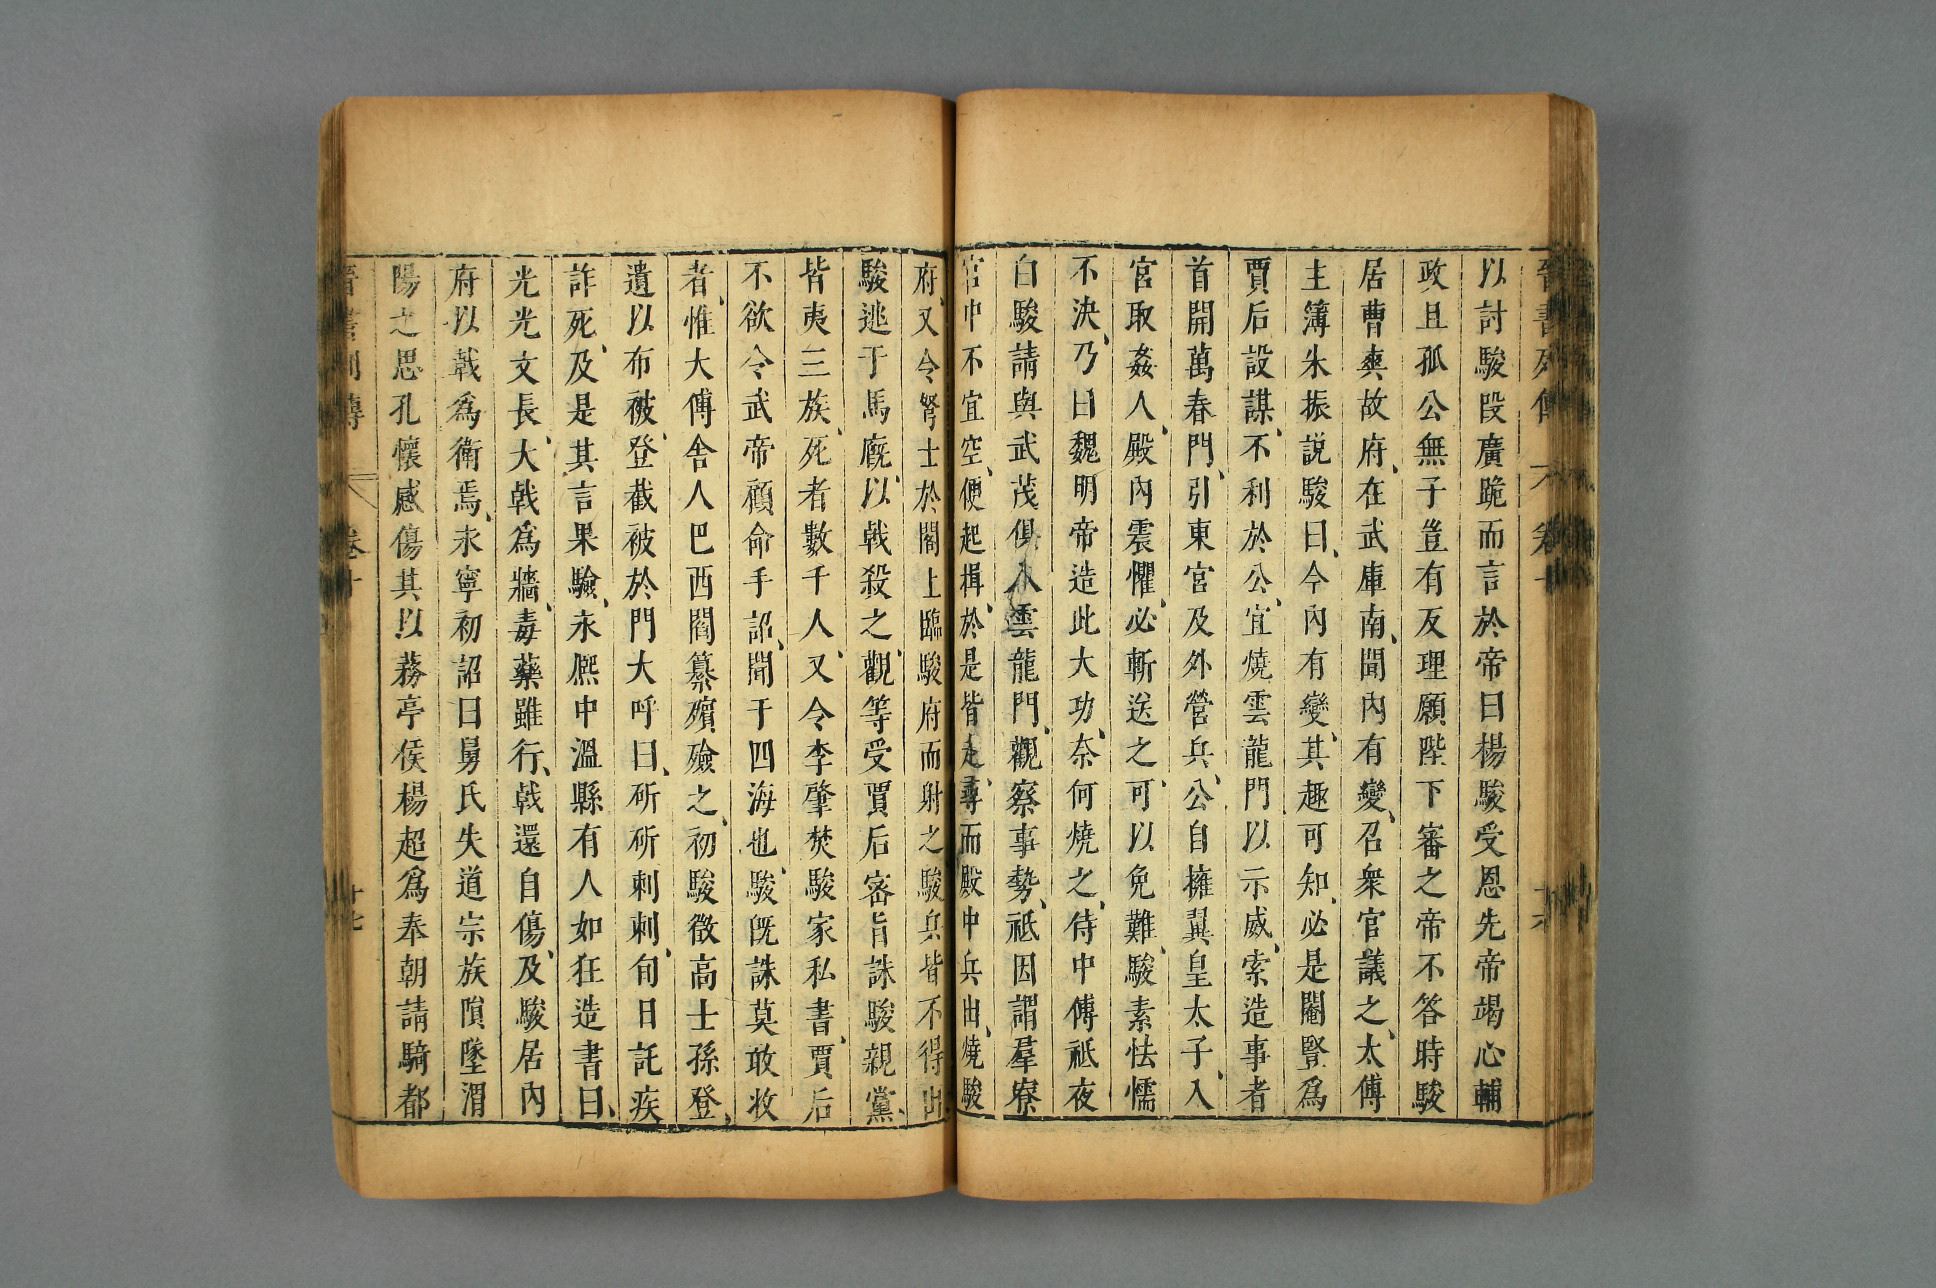 以討駿段廣跪而言於帝曰楊駿受恩先帝竭心輔
政且孤公無子豈有反理願陛下審之帝不答時駿
居曹爽故府、在武庫南、聞內有變、召衆官議之、太傅
主簿朱振說駿曰、今內有變、其趣可知、必是閹豎爲
賈后設謀、不利於公、宜燒雲龍門、以示威、索造事者
首開萬春門、引東宮及外營兵、公自擁翼皇太子、入
宮取姦人、殿內震懼、必斬送之、可以免難、駿素怯懦
不決、乃曰魏明帝造此大功、奈何燒之、侍中傅祗夜
白駿請與武茂俱入雲龍門、觀察事勢、祗因謂羣寮
宮中不宜空、便起揖、於是皆走、尋而殿中兵出、燒駿
府、又令弩士於閣上臨駿府而射之、駿兵皆不得出
駿逃于馬廐、以戟殺之、觀等受賈后密旨誅駿親黨、
皆夷三族、死者數千人、又令李肇焚駿家私書、賈后
不欲令武帝顧命手詔、聞于四海也、駿旣誅莫敢收
者、惟大傅舍人巴西閻纂殯殮之、初駿徵高士孫登、
遺以布被、登截被於門大呼曰、斫斫刺刺、旬日託疾
詐死、及是其言果驗、永熙中溫縣有人如狂造書曰、
光光文長、大戟爲牆、毒藥雖行、戟還自傷、及駿居內
府以戟爲衛焉、永寧初詔曰舅氏失道宗族隕墜渭
陽之思孔懷感傷其以蓩亭侯楊超爲奉朝請騎都